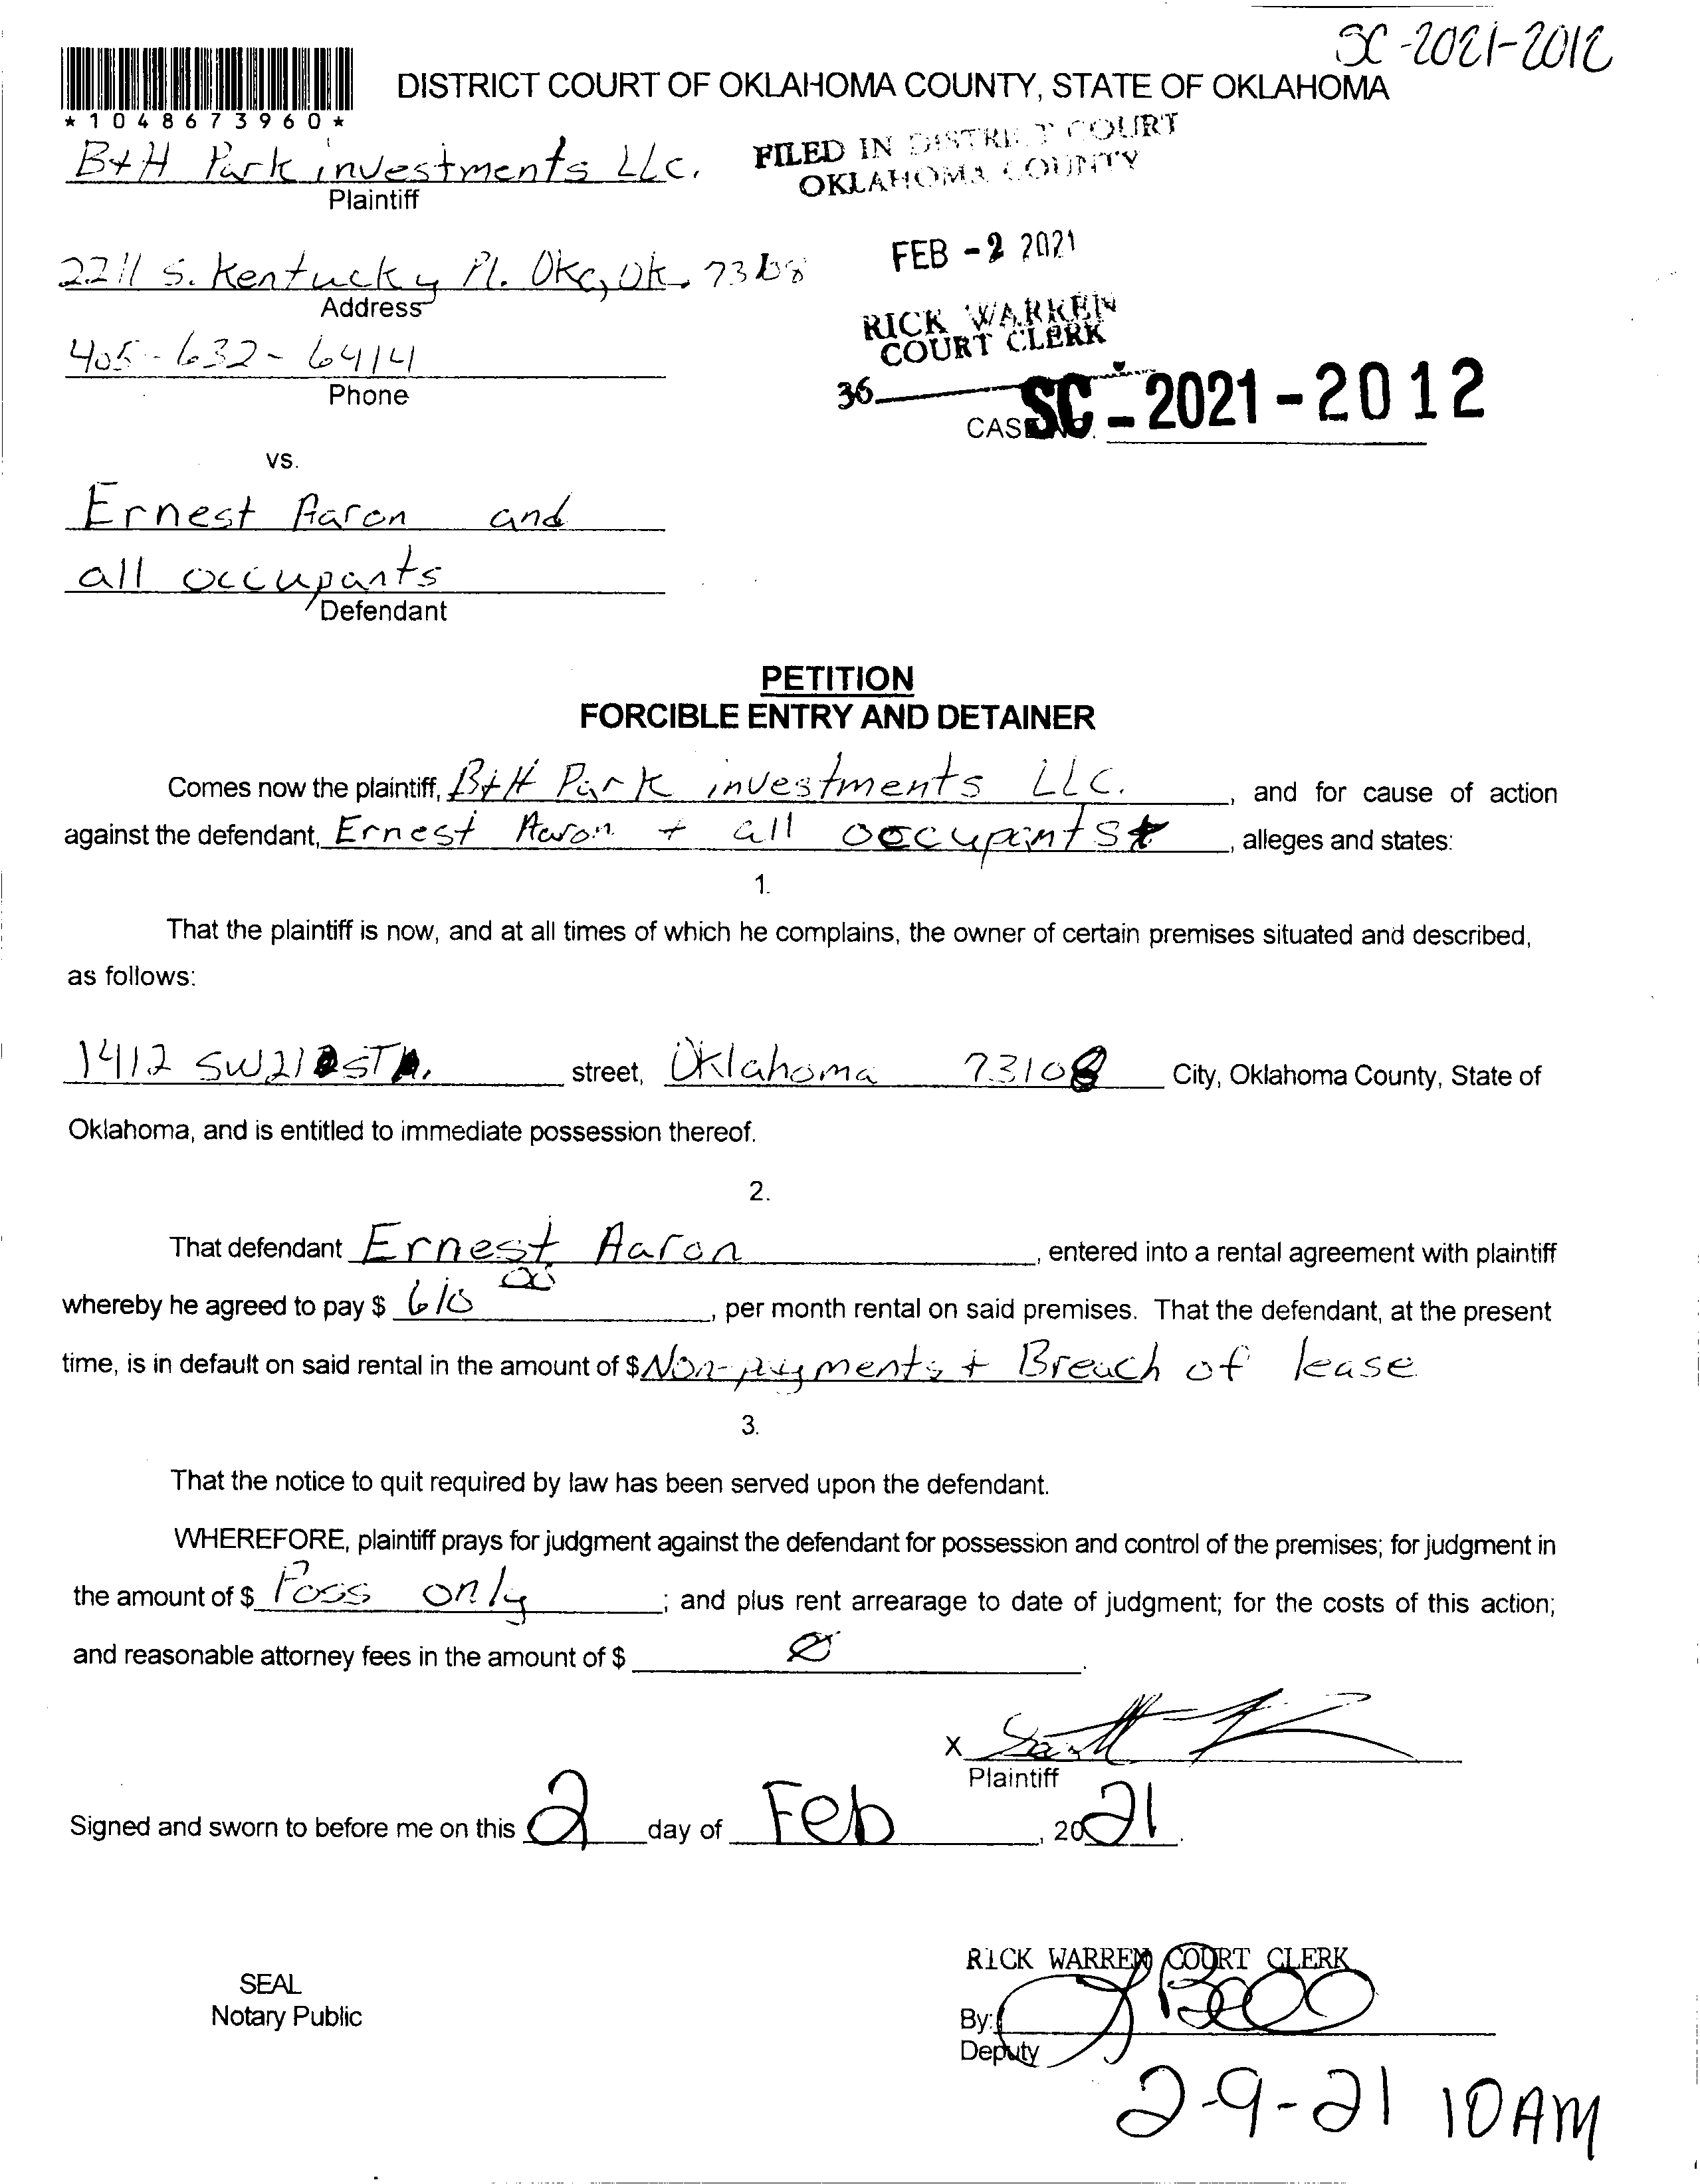 SC-2021-2012
DISTRICT COURT OF OKLAHOMA COUNTY, STATE OF OKLAHOMA
*1048673960*
B+H Park investments LLc.
Plaintiff
FILED IN DISTRICT COURT
OKLAHOMA COUNTY
2211 S. Kentucky Pl. Okc, Ok. 73108
Address
FEB -2 2021
405-632-6414
Phone
RICK WARREN
COURT CLERK
36
CASE NO. SC-2021-2012
vs.
Ernest Aaron and
all occupants
Defendant
PETITION
FORCIBLE ENTRY AND DETAINER
Comes now the plaintiff, B+H Park investments LLC. , and for cause of action
against the defendant, Ernest Aaron + all occupants , alleges and states:
1.
That the plaintiff is now, and at all times of which he complains, the owner of certain premises situated and described,
as follows:
1412 SW 21 ST. street, Oklahoma 73108 City, Oklahoma County, State of
Oklahoma, and is entitled to immediate possession thereof.
2.
That defendant Ernest Aaron , entered into a rental agreement with plaintiff
whereby he agreed to pay $ 610 00 , per month rental on said premises. That the defendant, at the present
time, is in default on said rental in the amount of $ Non-payments + Breach of lease
3.
That the notice to quit required by law has been served upon the defendant.
WHEREFORE, plaintiff prays for judgment against the defendant for possession and control of the premises; for judgment in
the amount of $ Poss only ; and plus rent arrearage to date of judgment; for the costs of this action;
and reasonable attorney fees in the amount of $ Ø .
X
Plaintiff
Signed and sworn to before me on this 2 day of Feb , 2021.
RICK WARREN COURT CLERK
SEAL
Notary Public
By:
Deputy
2-9-21 10AM